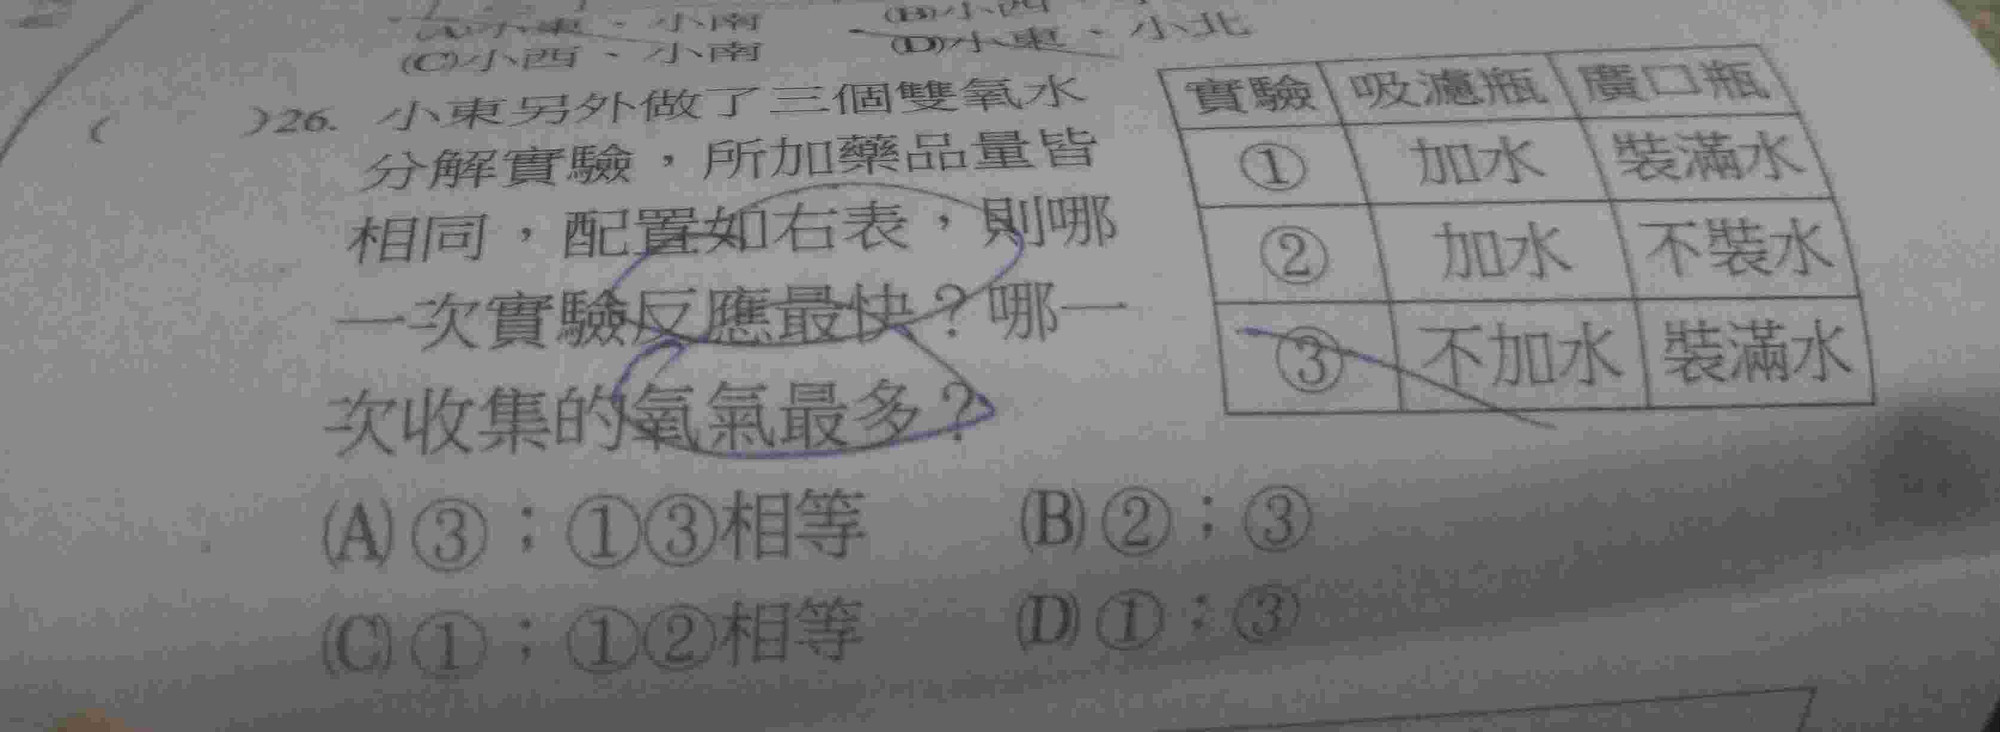 小南
(C)小西、小南
(D)小東、小北
( )26. 小東另外做了三個雙氧水
分解實驗，所加藥品量皆
相同，配置如右表，則哪
一次實驗反應最快？哪一
次收集的氧氣最多？
實驗 吸濾瓶 廣口瓶
① 加水 裝滿水
② 加水 不裝水
③ 不加水 裝滿水
(A) ③；①③相等 (B) ②；③
(C) ①；①②相等 (D) ①；③